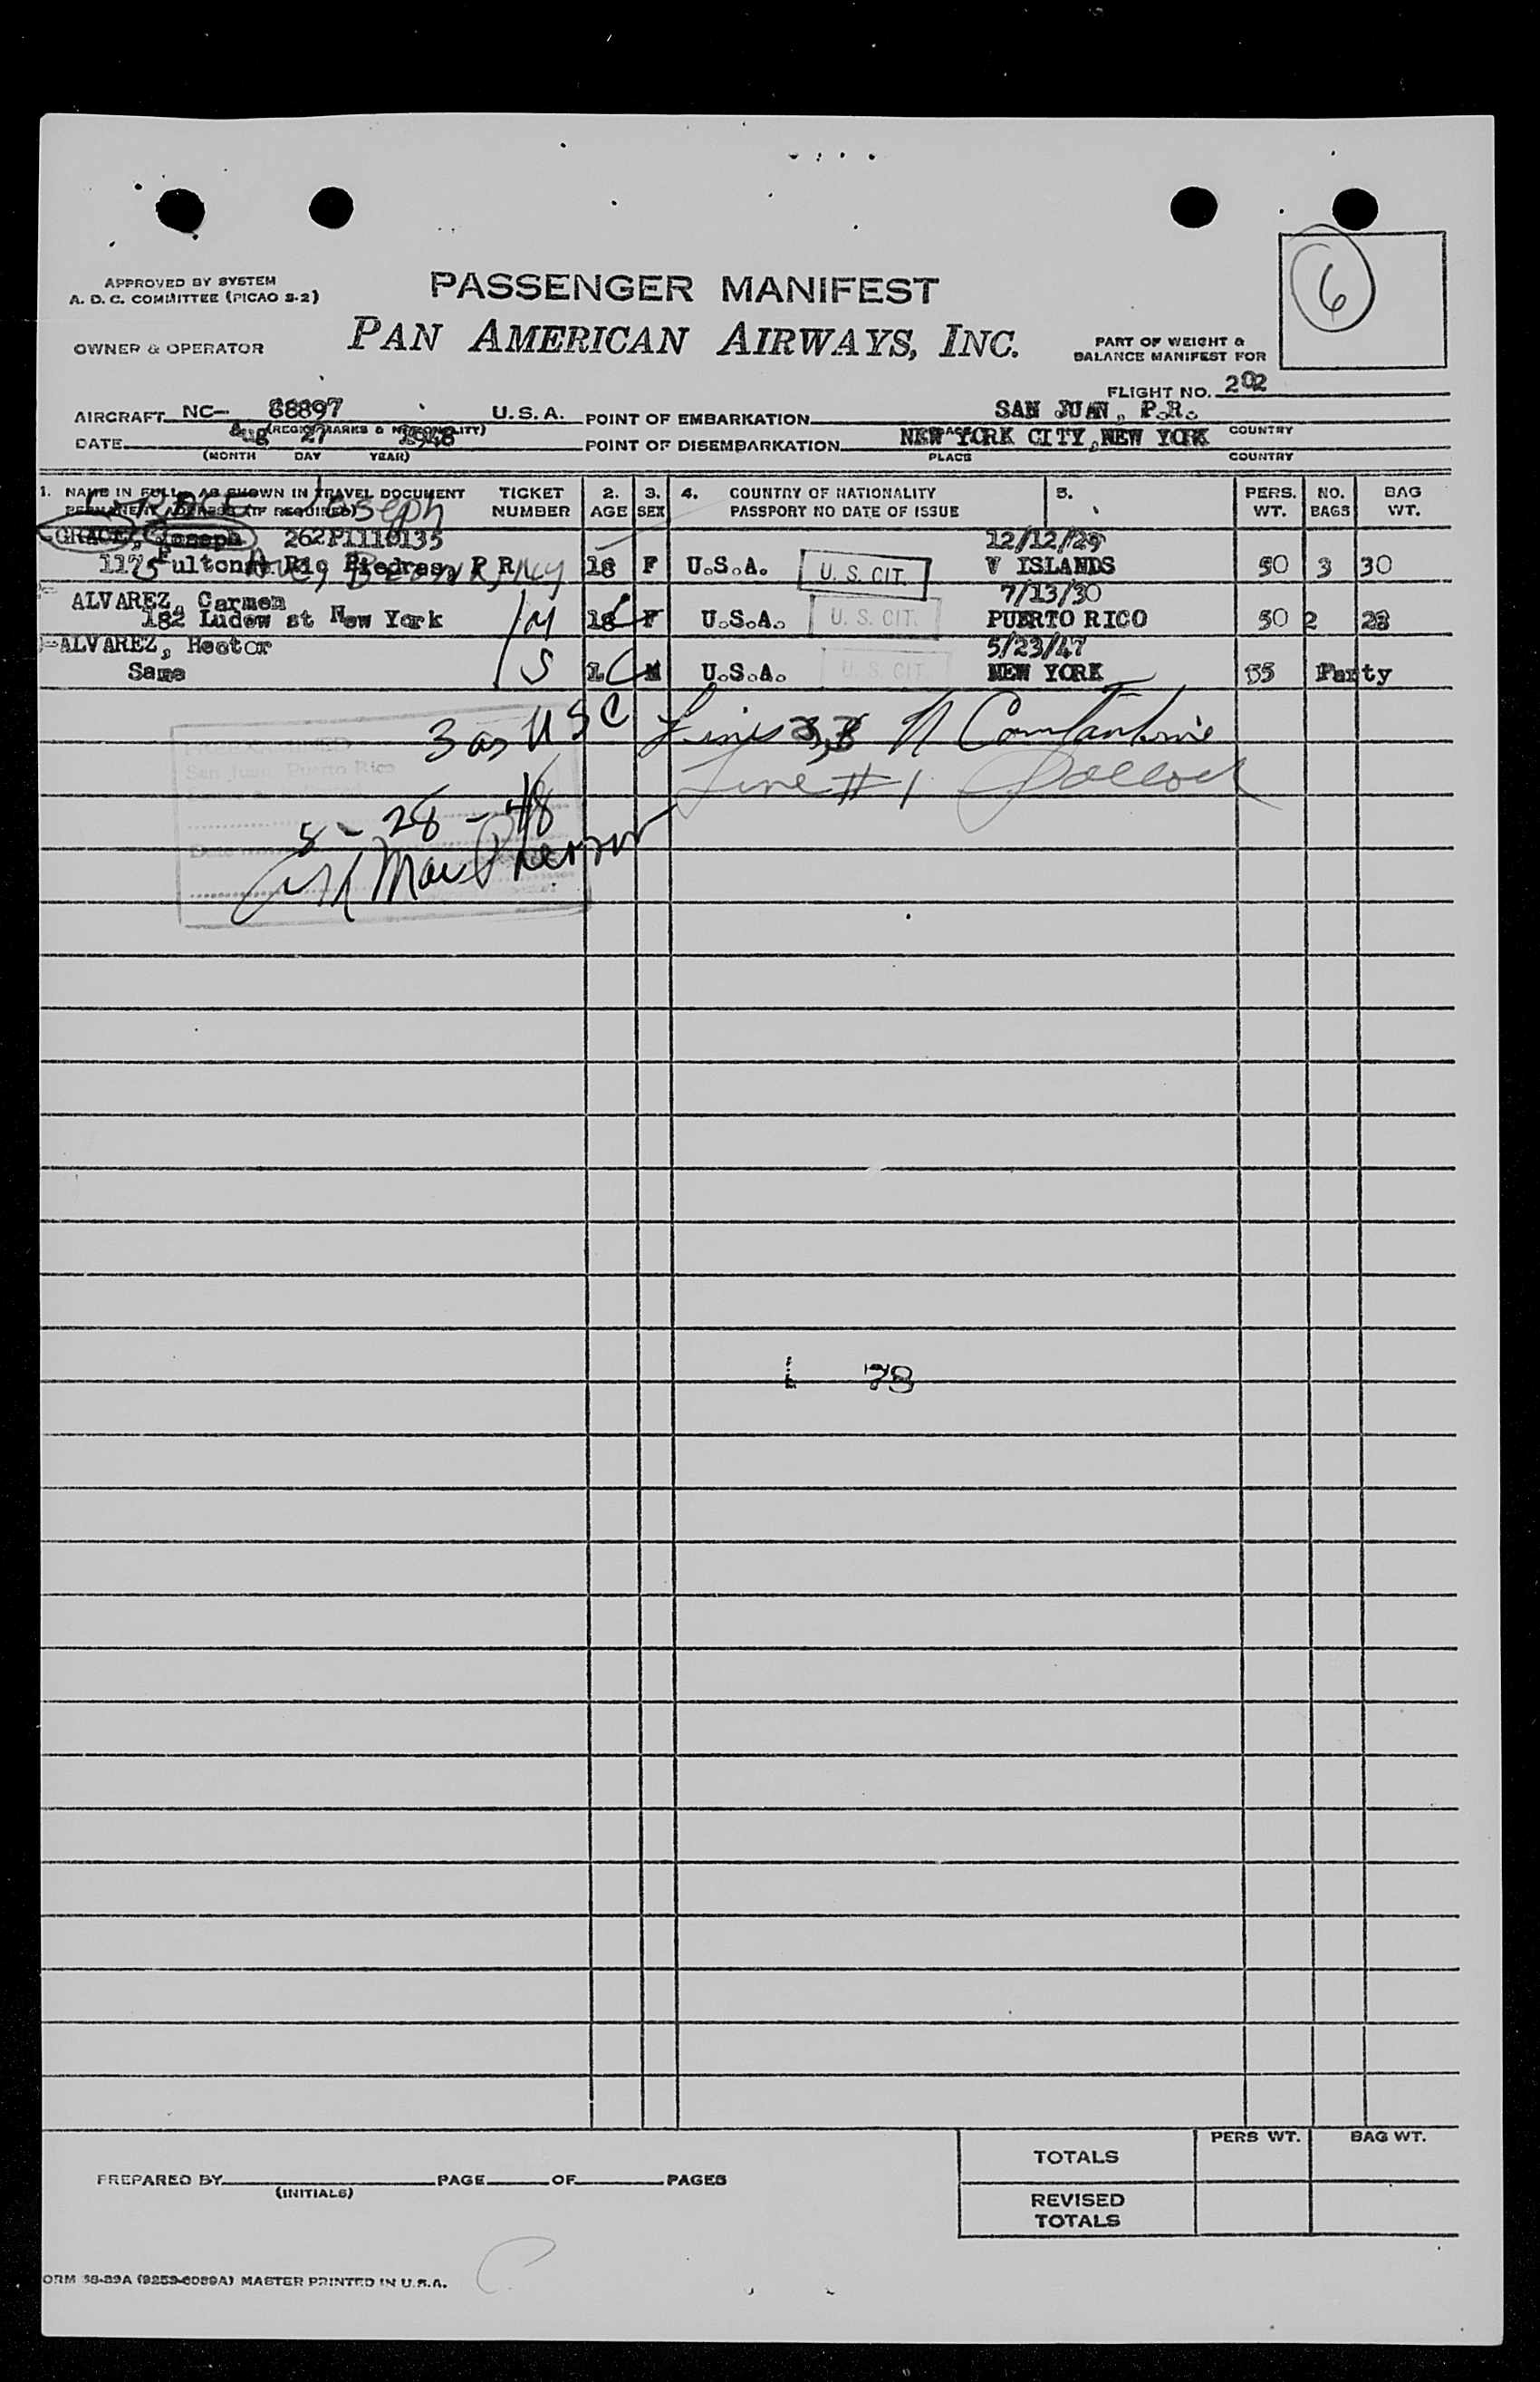 6
APPROVED BY SYSTEM
A. D. C. COMMITTEE (PICAO S-2)
PASSENGER MANIFEST
OWNER & OPERATOR
PAN AMERICAN AIRWAYS, INC.
PART OF WEIGHT &
BALANCE MANIFEST FOR
FLIGHT NO. 202
AIRCRAFT NC- 88897 U.S.A. POINT OF EMBARKATION SAN JUAN, P.R.
DATE Aug 27 1948 POINT OF DISEMBARKATION NEW YORK CITY, NEW YORK COUNTRY
(MONTH DAY YEAR) PLACE COUNTRY
1. NAME IN FULL AS SHOWN IN TRAVEL DOCUMENT TICKET 2. 3. 4. COUNTRY OF NATIONALITY 5. PERS. NO. BAG
PERMANENT ADDRESS (IF REQUIRED) NUMBER AGE SEX PASSPORT NO DATE OF ISSUE WT. BAGS WT.
Joseph
GRACE, Joseph 262P1110135 12/12/29
1175 Fulton Rio Piedras, P R 18 F U.S.A. U. S. CIT. V ISLANDS 50 3 30
ALVAREZ, Carmen 7/13/30
182 Ludow st New York M 18 F U.S.A. U. S. CIT. PUERTO RICO 50 2 28
ALVAREZ, Hector 5/23/47
Same S 1 M U.S.A. U. S. CIT. NEW YORK 35 Party
3 as USC Lines 2,3 N Constantine
San Juan, Puerto Rico
Line #1
8-28-48
MacPherson
TOTALS PERS WT. BAG WT.
PREPARED BY PAGE OF PAGES
(INITIALS)
REVISED
TOTALS
ORM 38-29A (9253-6039A) MASTER PRINTED IN U.S.A.